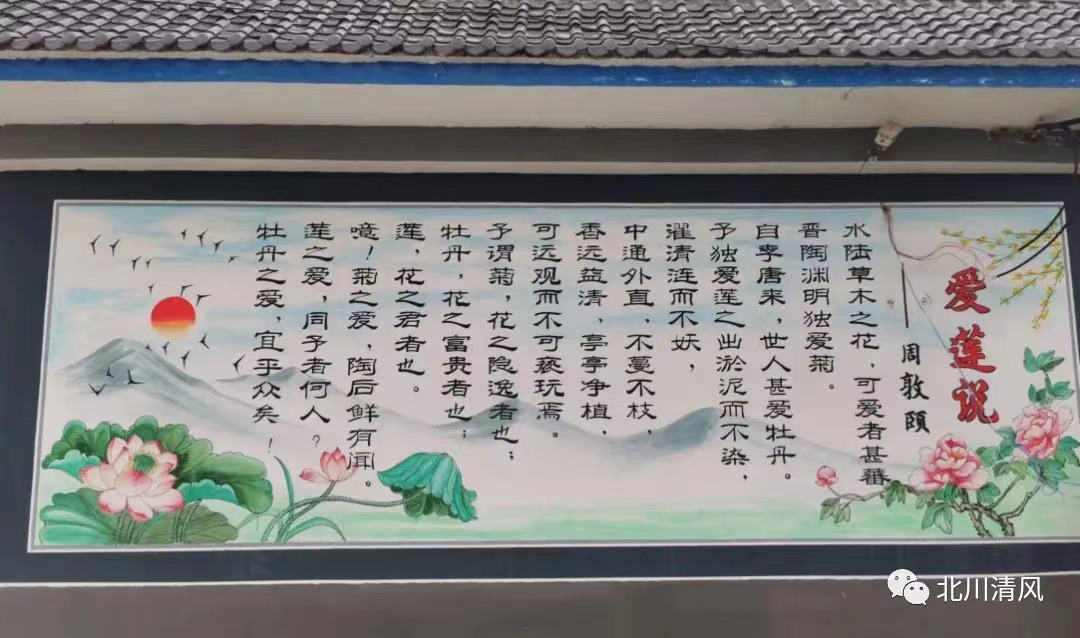 爱莲说
——周敦頤
水陆草木之花，可爱者甚蕃
晋陶渊明独爱菊。
自李唐来，世人甚爱牡丹。
予独爱莲之出淤泥而不染，
濯清涟而不妖，
中通外直，不蔓不枝，
香远益清，亭亭净植，
可远观而不可亵玩焉。
予谓菊，花之隐逸者也；
牡丹，花之富贵者也；
莲，花之君者也。
噫！菊之爱，陶后鲜有闻。
莲之爱，同予者何人？
牡丹之爱，宜乎众矣！
北川清风